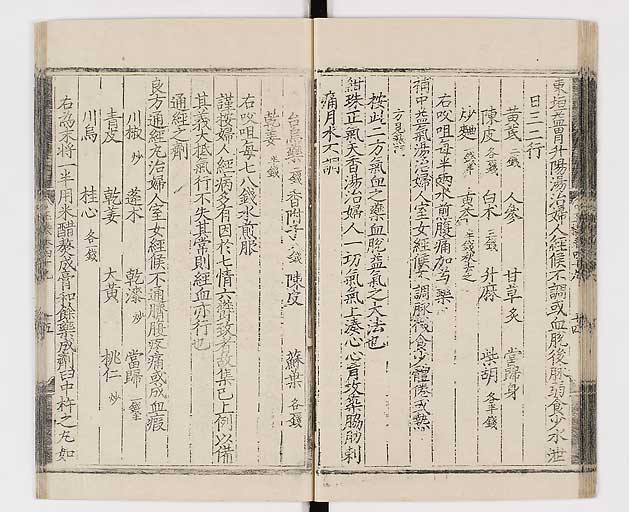 東垣益胃升陽湯治婦人經候不調或血脫後脉弱食少水泄
日三二行
黃芪二錢 人參 甘草炙 當歸身
陳皮各錢 白朮三錢 升麻 柴胡各半錢
炒麵 黃芩
右㕮咀每半兩水煎腹痛加芍藥
補中益氣湯治婦人室女經候不調脉微食少體倦或熱
方見
按此二方氣血之藥血脫益氣之大法也
紺珠正氣天香湯治婦人一切氣氣上湊心心胷攻築脇肋刺
痛月水不調
台烏藥 香附子 陳皮 蘇葉各錢
乾姜半錢
右㕮咀每七八錢水煎服
謹按婦人經病多有因於七情六欝攻者故集已上例以備
其義大抵氣行不失其常則經血亦行也
通經之劑
良方通經元治婦人室女經候不通臍腹疼痛或成血瘕
川椒炒 蓬朮 乾漆炒 當歸
青皮 乾姜 大黃 桃仁炒
川烏 桂心各錢
右爲末將一半用米醋熬成膏和餘藥成劑臼中杵之丸如